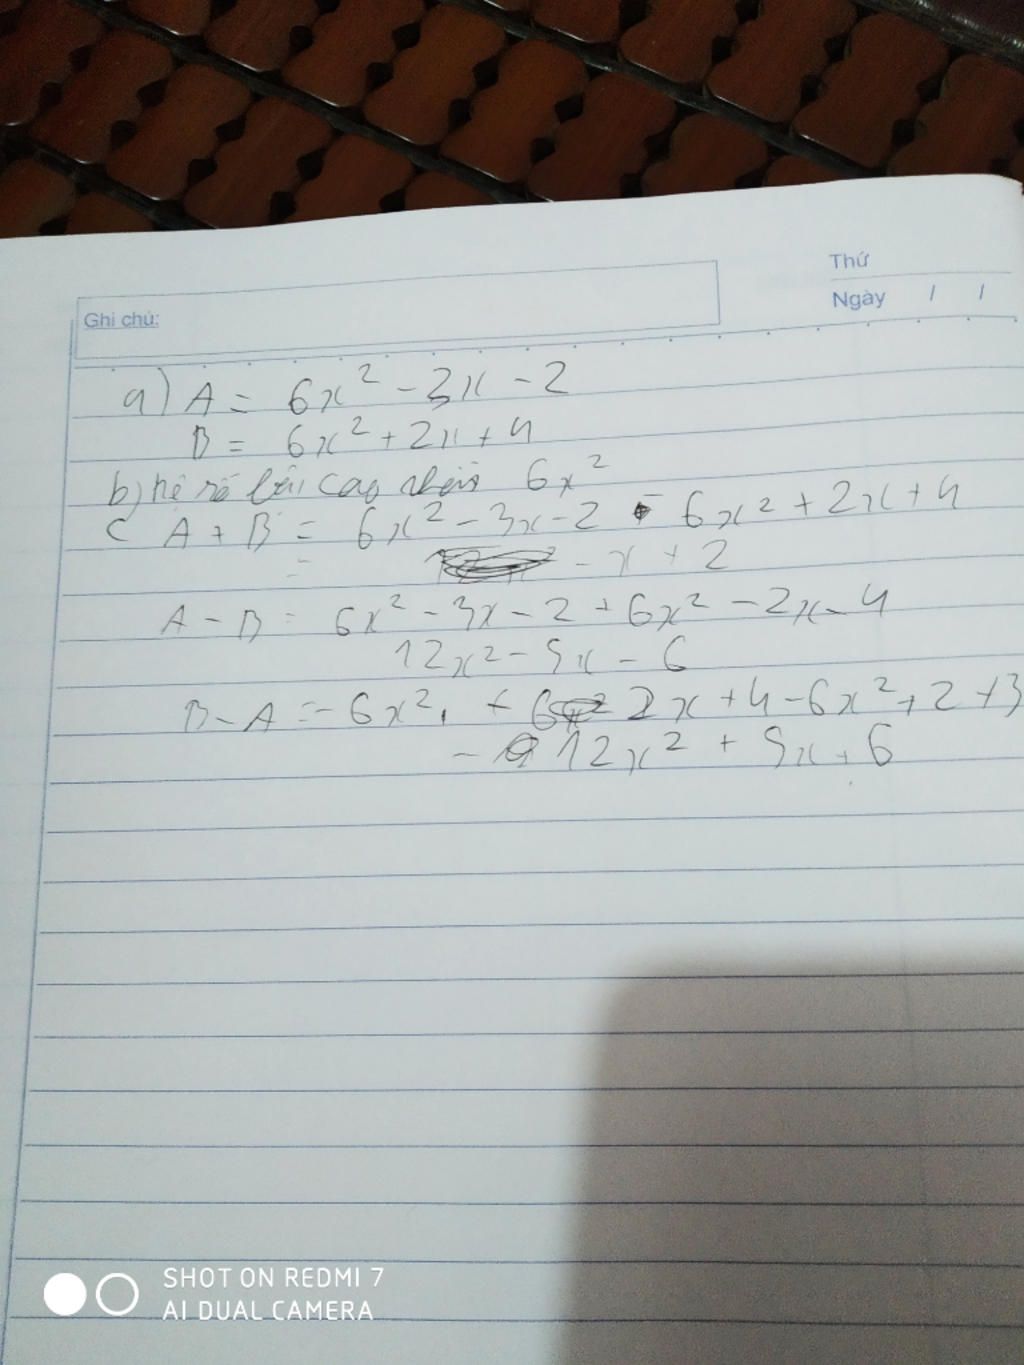 Thứ
Ngày / /
Ghi chú:
a) A = 6x² - 3x - 2
B = 6x² + 2x + 4
b) hệ số bậc cao nhất 6x²
c A + B = 6x² - 3x - 2 - 6x² + 2x + 4
= - x + 2
A - B = 6x² - 3x - 2 + 6x² - 2x - 4
12x² - 5x - 6
B - A = - 6x² + 2x + 4 - 6x² + 2 + 3
- 12x² + 5x + 6
SHOT ON REDMI 7
AI DUAL CAMERA